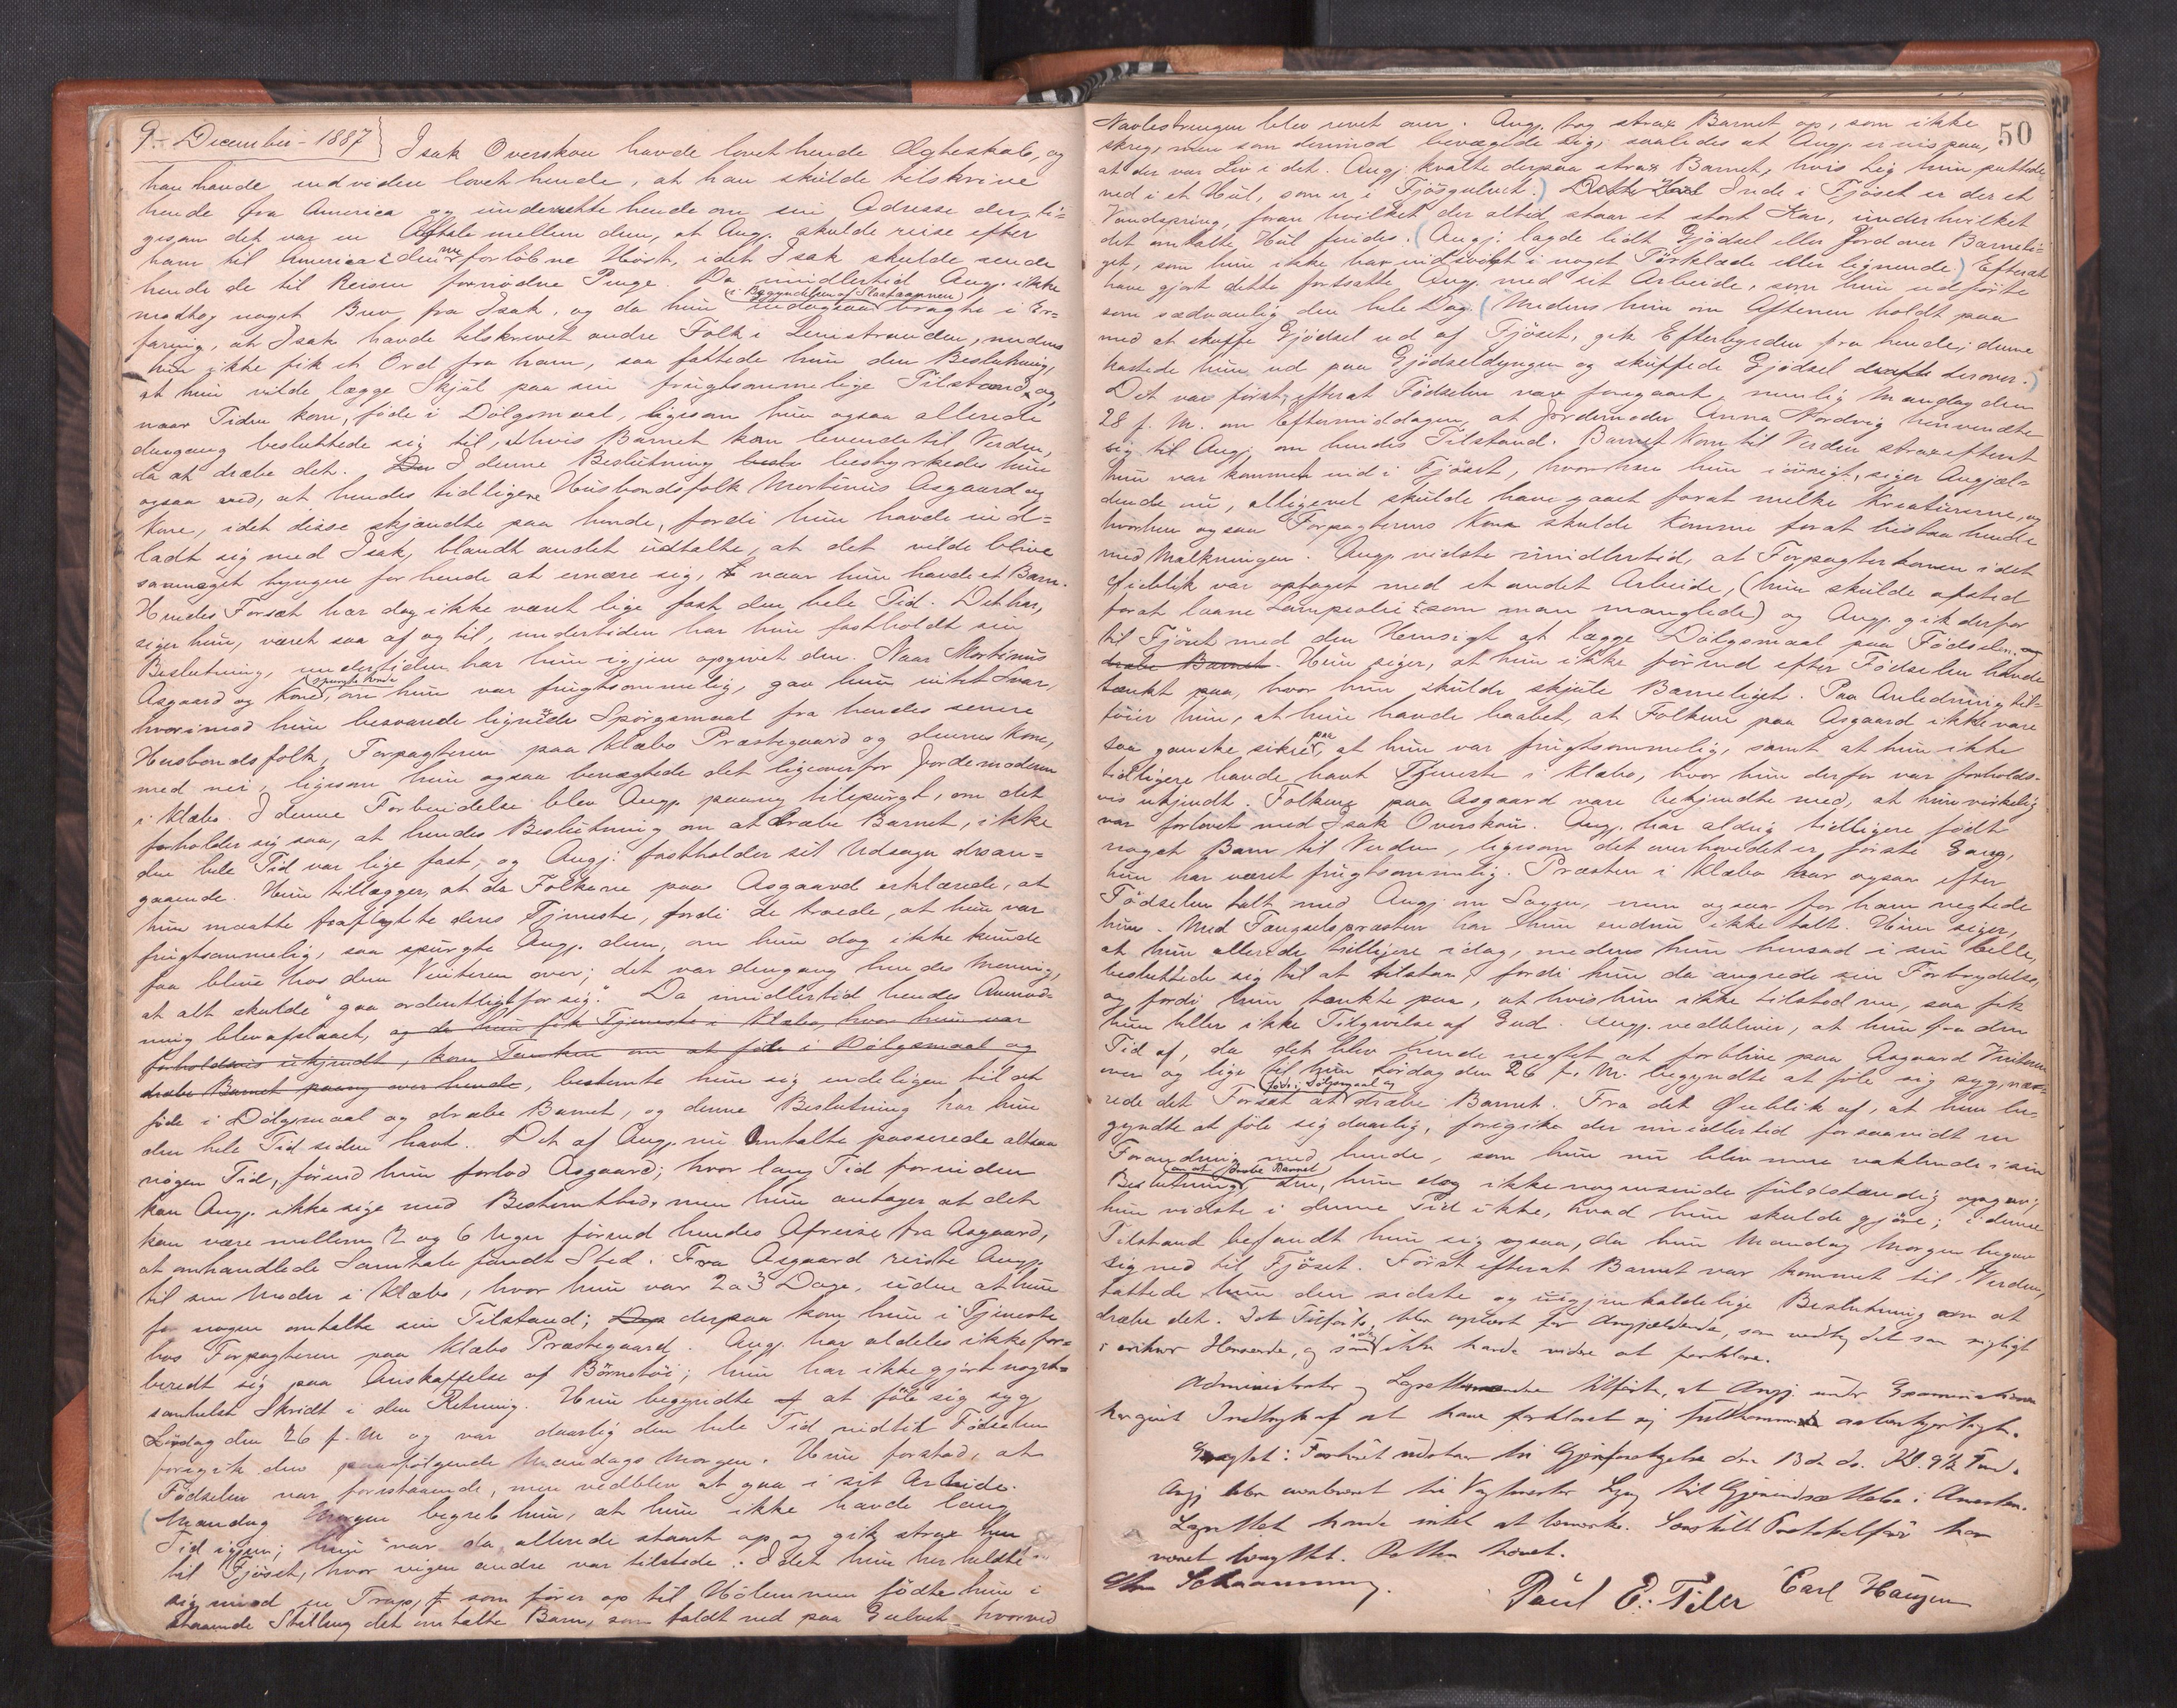 9. December 1887
Isak Overskou havde lovet hende Ægteskab, og
han havde endvidere lovet hende, at han skulde tilskrive
hende fra America og underrette hende om sin Adresse der, li-
gesom det var en Aftale mellem dem, at Angj. skulde reise efter
ham til America i den nu forløbne Høst, idet Isak skulde sende
hende de til Reisen fornødne Penge. Da imidlertid Angj. ikke
modtog noget Brev fra Isak, og da hun (i Begyndelsen af Slaataannen) bragte i Er-
faring, at Isak havde tilskrevet andre Folk i Leinstranden, medens
hun ikke fik et Ord fra ham, saa fattede hun den Beslutning,
at hun vilde lægge Skjul paa sin frugtsommelige Tilstand og,
naar Tiden kom, føde i Dølgsmaal, ligesom hun ogsaa allerede
dengang besluttede sig til, at hvis Barnet kom levende til Verden,
da at dræbe det. I denne Beslutning bestyrkedes hun
ogsaa ved, at hendes tidligere Husbondsfolk Mortinus Asgaard og
Kone, idet disse skjændte paa hende, fordi hun havde ind-
ladt sig med Isak, blandt andet udtalte, at det vilde blive
saameget tyngere for hende at ernære sig, naar hun havde et Barn.
Hendes Forsæt har dog ikke været lige fast den hele Tid. Det har,
siger hun, været saa af og til, undertiden har hun fastholdt sin
Beslutning, undertiden har hun igjen opgivet den. Naar Mortinus
Asgaard og Kone spurgte hende om hun var frugtsommelig, gav hun intet Svar,
hvorimod hun besvarede lignende Spørgsmaal fra hendes senere
Husbondsfolk, Forpagteren paa Klæbo Præstegaard og dennes Kone,
med nei, ligesom hun ogsaa benægtede det ligeoverfor Jordemoderen
i Klæbo. I denne Forbindelse blev Angj. paany tilspurgt, om det
forholder sig saa, at hendes Beslutning om at dræbe Barnet, ikke
den hele Tid var lige fast, og Angj. fastholder sit Udsagn desan-
gaaende. Hun tillægger, at da Folkene paa Asgaard erklærede, at
hun maatte fraflytte deres Tjeneste, fordi de troede, at hun var
frugtsommelig, saa spurgte Angj. dem, om hun dog ikke kunde
faa blive hos dem Vinteren over; det var dengang hendes Mening,
at alt skulde "gaa ordentligt for sig." Da imidlertid hendes Anmod-
ning blev afslaaet, og da hun fik Tjeneste i Klæbo, hvor hun var
forholdsvis ukjendt, kom Tanken om at føde i Dølgsmaal og
dræbe Barnet paany over hende, bestemte hun sig endeligen til at
føde i Dølgsmaal og dræbe Barnet, og denne Beslutning har hun
den hele Tid siden havt. Det af Angj. nu omtalte passerede altsaa
nogen Tid, førend hun forlod Asgaard; hvor lang Tid forinden
kan Angj. ikke sige med Bestemthed, men hun antager at det
kan være mellem 2 og 6 Uger førend hendes Afreise fra Asgaard,
at omhandlede Samtale fandt Sted. Fra Asgaard reiste Angj.
til sin Moder i Klæbo, hvor hun var 2 a 3 Dage, uden at hun
for nogen omtalte sin Tilstand; derpaa kom hun i Tjeneste
hos Forpagteren paa Klæbo Præstegaard. Angj. har aldeles ikke for-
beredt sig paa Anskaffelse af Børnetøi; hun har ikke gjort noget-
somhelst Skridt i den Retning. Hun begyndte at føle sig syg
Lørdag den 26 f. M. og var daarlig den hele Tid indtil Fødselen
foregik den paafølgende Mandags Morgen. Hun forstod, at
Fødselen var forestaaende, men vedblev at gaa i sit Arbeide.
(Mandag Morgen begreb hun, at hun ikke havde lang
Tid igjen; hun var da allerede staaet op og gik strax hen
til Fjøset, hvor ingen andre var tilstede. Idet hun her heldte
sig mod en Trap, som fører op til Hølemmen fødte hun i
staaende Stilling det omtalte Barn, som faldt ned paa Gulvet hvorved
50
Navlestrengen blev revet over. Angj. tog strax Barnet op, som ikke
skreg, men som derimod bevægede sig, saaledes at Angj. er vis paa,
at der var Liv i det. Angj. kvalte derpaa strax Barnet, hvis Lig hun puttede
ned i et Hul, som er i Fjøsgulvet.) Dette Hul Inde i Fjøset er der et
Vandspring, foran hvilket der altid staar et stort Kar, under hvilket
det omtalte Hul findes. (Angj. lagde lidt Gjødsel eller Jord over Barneli-
get, som hun ikke har indsvøbt i noget Tørklæde eller lignende) Efterat
have gjort dette fortsatte Angj. med sit Arbeide, som hun udførte
som sædvanlig den hele Dag. (Medens hun om Aftenen holdt paa
med at skuffe Gjødsel ud af Fjøset, gik Efterbyrden fra hende; denne
kastede hun ud paa Gjødseldyngen og skuffede Gjødsel derover.)
Det var først, efterat Fødselen var foregaaet, nemlig Mandag den
28 f. M. om Eftermiddagen, at Jordemoder Anna Nordvig henvendte
sig til Angj. om hendes Tilstand. Barnet kom til Verden strax efterat
hun var kommet ind i Fjøset, hvorhen hun iøvrigt, siger Angjæl-
dende nu, alligevel skulde have gaaet forat melke Kreaturerne, og
hvorhen ogsaa Forpagterens Kone skulde komme forat bistaa hende
med Malkningen. Angj. vidste imidlertid, at Forpagterkonen i det
Øieblik var optaget med et andet Arbeide, (hun skulde afsted
forat laane Lampeolie som man manglede) og Angj. gik derfor
til Fjøset med den Hensigt at lægge Dølgsmaal paa Fødselen og
dræbe Barnet. Hun siger, at hun ikke førend efter Fødselen havde
tænkt paa, hvor hun skulde skjule Barneliget. Paa Anledning til-
føier hun, at hun havde haabet, at Folkene paa Asgaard ikke vare
saa ganske sikre paa at hun var frugtsommelig, samt at hun ikke
tidligere havde havt Tjeneste i Klæbo, hvor hun derfor var forholds-
vis ukjendt. Folkene paa Asgaard vare bekjendte med, at hun virkelig
var forlovet med Isak Overskou. Angj. har aldrig tidligere født
noget Barn til Verden, ligesom det overhovedet er første Gang,
hun har været frugtsommelig. Præsten i Klæbo har ogsaa efter
Fødselen talt med Angj. om Sagen, men ogsaa for ham negtede
hun. Med Fængselspræsten har hun endnu ikke talt. Hun siger,
at hun allerede tidligere idag, medens hun hensad i sin Celle,
besluttede sig til at tilstaa, fordi hun da angrede sin Forbrydelse,
og fordi hun tænkte paa, at hvis hun ikke tilstod nu, saa fik
hun heller ikke Tilgivelse af Gud. Angj. vedbliver, at hun fra den
Tid af, da det blev hende negtet at forblive paa Asgaard Vinteren
over og lige til hun Lørdag den 26 f. M. begyndte at føle sig syg, næ-
rede det Forsæt at (føde i Dølgsmaal og) dræbe Barnet. Fra det Øieblik af, at hun be-
gyndte at føle sig daarlig, foregik der imidlertid forsaavidt en
Forandring med hende, som hun nu blev mere vaklende i sin
Beslutning (om at dræbe Barnet) den, hun dog ikke nogensinde fuldstændig opgav;
hun vidste i denne Tid ikke, hvad hun skulde gjøre; i denne
Tilstand befandt hun sig ogsaa, da hun Mandag Morgen begav
sig ned til Fjøset. Først efterat Barnet var kommet til Verden,
fattede hun den sidste og uigjenkaldelige Beslutning om at
dræbe det. Det Tilførte blev oplæst for Angjældende, som vedtog det som rigtigt
i enhver Henseende, og som ikke havde videre at forklare.
Administrator og Lagrettemændene tilførte, at Angj. under Examinationen
har givet Indtryk af at have forklaret sig fuldkommen
Eragtet: Forhøret udstaar til Gjenforetagelse den 13de ds. Kl. 9½ Fmd.
Angj. blev overleveret til Vagtmester Lyng til Gjenindsættelse i Arresten.
Lagrettet havde intet at bemerke. Særskilt Protokolfør har
været benyttet. Retten hævet.
Schaanning.
Paul E. Tiller
Carl Haugen